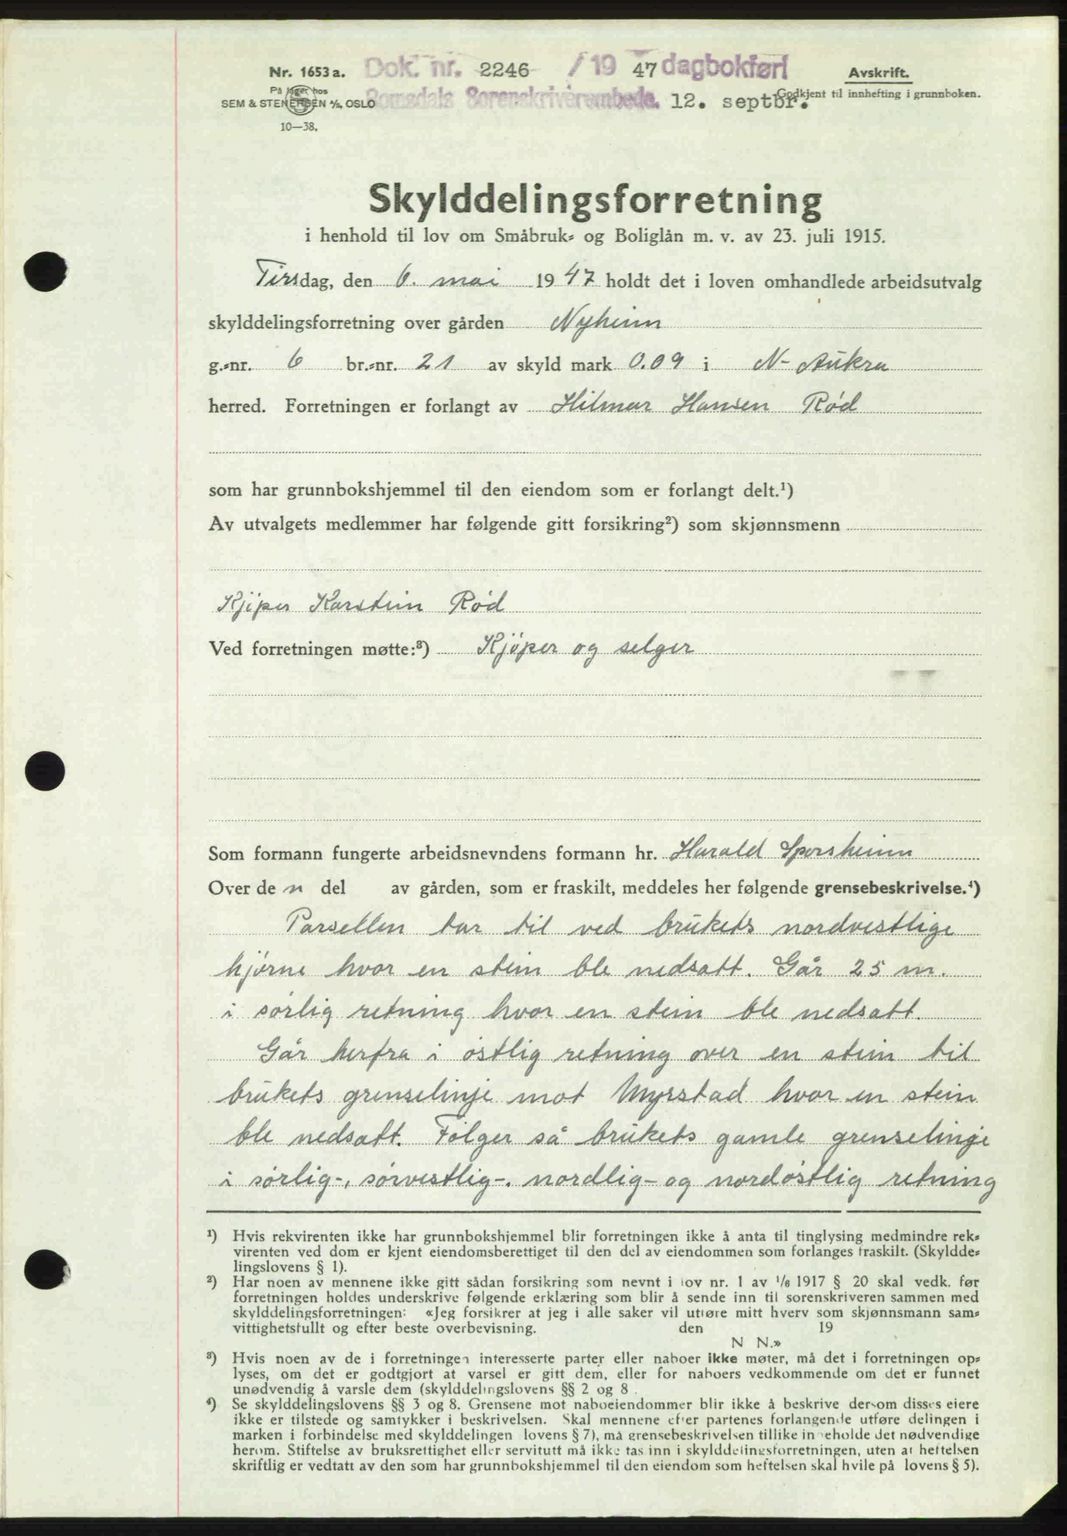 Nr. 1653a. Dok. nr. 2246 / 19 47 dagbokført Avskrift.
På lager hos
SEM & STENERSEN A/S, OSLO Romsdals Sorenskriverembede. 12. septbr. Godkjent til innhefting i grunnboken.
10—38.
Skylddelingsforretning
i henhold til lov om Småbruk- og Boliglån m. v. av 23. juli 1915.
Tirsdag, den 6. mai 1947 holdt det i loven omhandlede arbeidsutvalg
skylddelingsforretning over gården Nyheim
g.-nr. 6 br.-nr. 21 av skyld mark 0.09 i N- Aukra
herred. Forretningen er forlangt av Hilmar Hansen Rød
som har grunnbokshjemmel til den eiendom som er forlangt delt.¹)
Av utvalgets medlemmer har følgende gitt forsikring²) som skjønnsmenn
Kjøper Karstein Rød
Ved forretningen møtte:³) Kjøper og selger
Som formann fungerte arbeidsnevndens formann hr. Harald Sporsheim
Over de n del av gården, som er fraskilt, meddeles her følgende grensebeskrivelse.⁴)
Parsellen tar til ved brukets nordvestlige
hjørne hvor en stein ble nedsatt. Går 25 m.
i sørlig retning hvor en stein ble nedsatt.
Går herfra i østlig retning over en stein til
brukets grenselinje mot Myrstad hvor en stein
ble nedsatt. Følger så brukets gamle grenselinje
i sørlig-, sørvestlig-, nordlig- og nordøstlig retning
¹) Hvis rekvirenten ikke har grunnbokshjemmel blir forretningen ikke å anta til tinglysing medmindre rek-
virenten ved dom er kjent eiendomsberettiget til den del av eiendommen som forlanges fraskilt. (Skyldde-
lingslovens § 1).
²) Har noen av mennene ikke gitt sådan forsikring som nevnt i lov nr. 1 av 1/6 1917 § 20 skal vedk. før
forretningen holdes underskrive følgende erklæring som blir å sende inn til sorenskriveren sammen med
skylddelingsforretningen: «Jeg forsikrer at jeg i alle saker vil utføre mitt hverv som skjønnsmann sam-
vittighetsfullt og efter beste overbevisning. den 19
N N.»
³) Hvis noen av de i forretningen interesserte parter eller naboer ikke møter, må det i forretningen op-
lyses, om det er godtgjort at varsel er gitt dem, eller for naboers vedkommende om det er funnet
unødvendig å varsle dem (skylddelingslovens §§ 2 og 8
⁴) Se skylddelingslovens §§ 3 og 8. Grensene mot naboeiendommer blir ikke å beskrive dersom disses eiere
ikke er tilstede og samtykker i beskrivelsen. Skal mennene efter partenes forlangende utføre delingen i
marken i forbindelse med skylddelingen lovens § 7), må grensebeskrivelsen tillike inneholde det nødvendige
herom. Stiftelse av bruksrettighet eller servitutt må ikke tas inn i skylddelingsforretningen, uten at heftelsen
skriftlig er vedtatt av den som har grunnbokshjemmel til den eiendom som heftelsen skal hvile på lovens § 5).